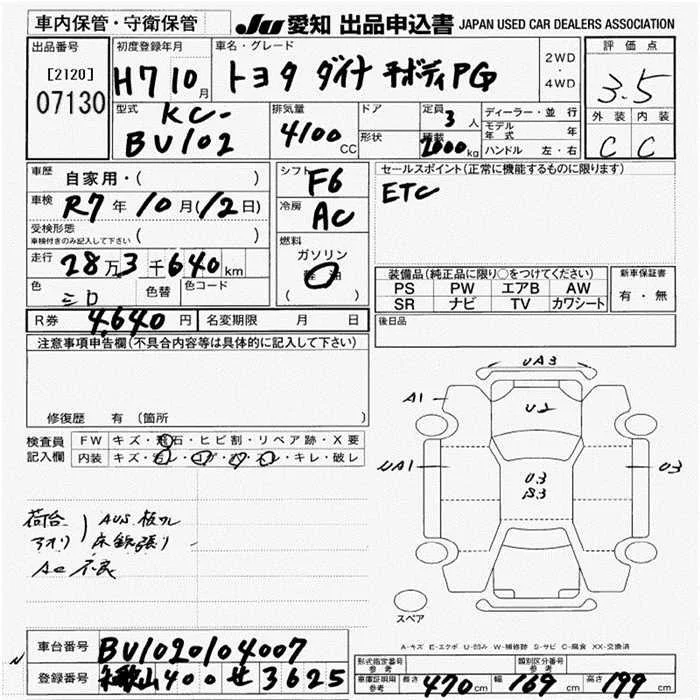 車内保管・守衛保管
JU 愛知 出品申込書 JAPAN USED CAR DEALERS ASSOCIATION
出品番号
[2120]
07130
初度登録年月
H7 10月
車名・グレード
トヨタ ダイナ 平ボディPG
2WD
・
4WD
評価点
3.5
外装 内装
C C
型式
KC-
BU102
排気量
4100 CC
ドア
形状
定員
3 人
積載
2000 kg
ディーラー・並行
モデル年式 年
ハンドル 左・右
車歴
自家用・( )
車検
R7年10月(12日)
受検形態
車検付きのみ記入して下さい ( )
走行
28万3千640km
色
シロ
色替
色コード
R券 4,640円
名変期限 月 日
シフト
F6
冷房
AC
燃料
ガソリン
軽油
( )
セールスポイント(正常に機能するものに限ります)
ETC
装備品(純正品に限り○をつけてください)
PS PW エアB AW
SR ナビ TV カワシート
新車保証書
有・無
後日品
注意事項申告欄(不具合内容等は具体的に記入して下さい)
修復歴 有 (箇所 )
検査員記入欄
FW キズ・飛石・ヒビ割・リペア跡・X要
内装 キズ・汚レ・コゲ・穴・スレ・キレ・破レ
荷台
アオリ
AUS 板フレ
床鉄張り
AC 不良
UA3
A1
U2
UA1
U3
U3
S3
スペア
A-キズ E-エクボ U-凹み W-補修跡 S-サビ C-腐食 XX-交換済
車台番号 BU1020104007
登録番号 和歌山400せ3625
形式指定番号
参考
類別区分番号
参考
車庫証明用
参考
長さ 470cm 幅 169cm 高さ 199cm